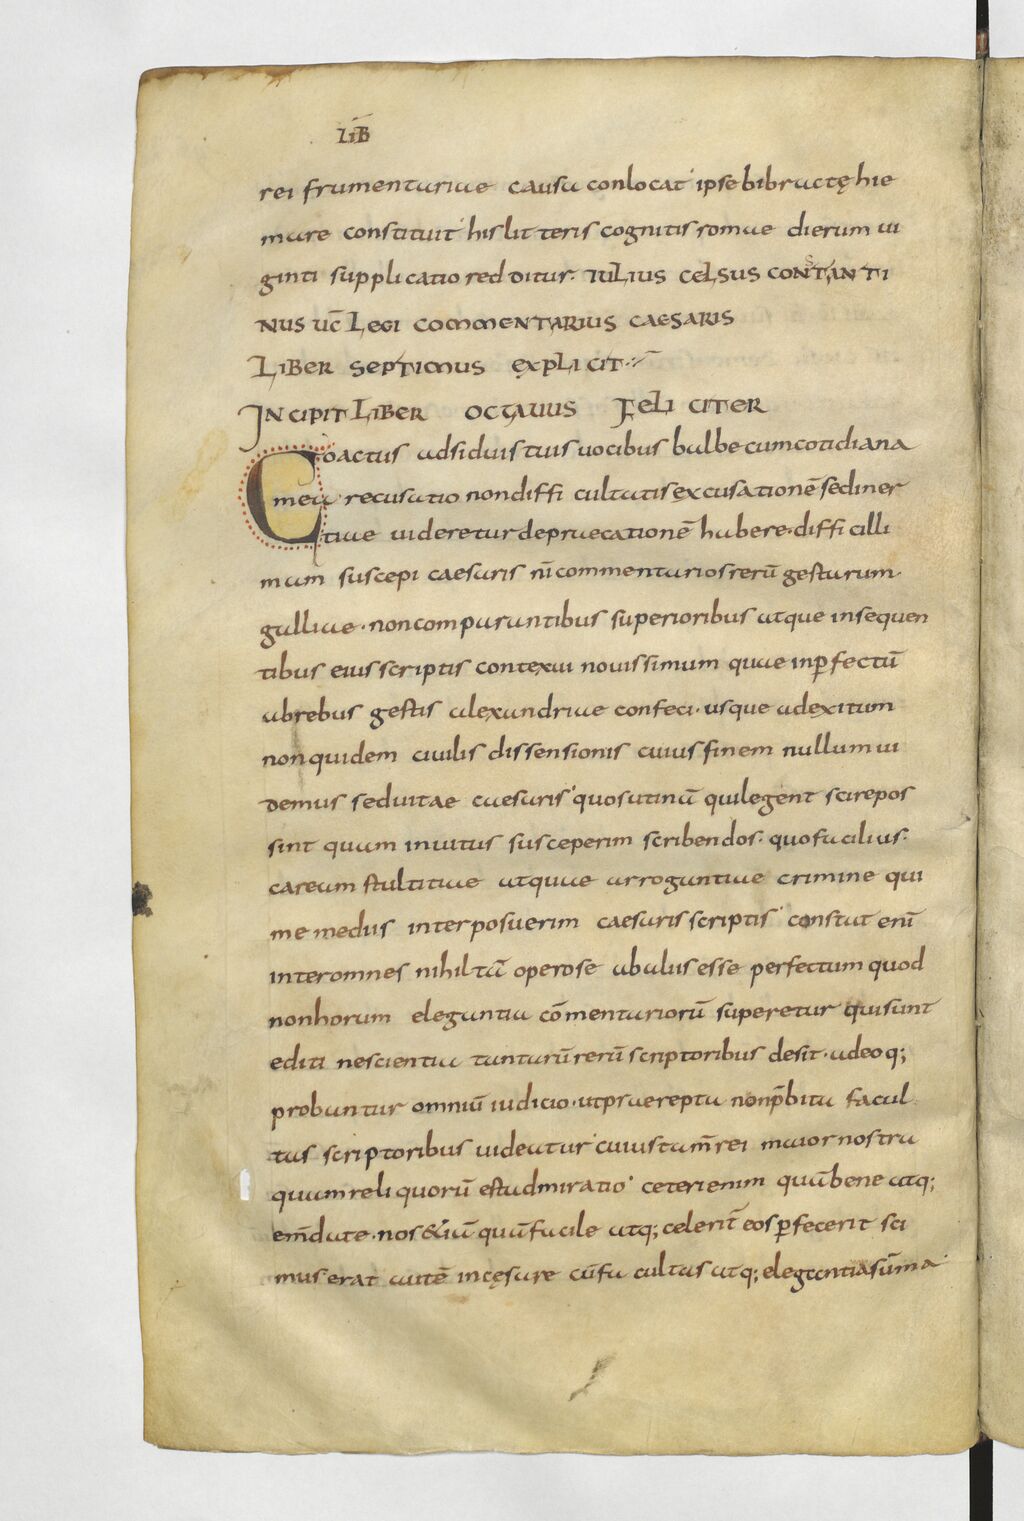 LIB̅
rei frumentariae causa conlocat ipse bibractę hie
mare constituit his litteris cognitis romae dierum ui
ginti supplicatio redditur. IULIUS CELSUS CONSTANTI
NUS UC̅ LEGI COMMENTARIUS CAESARIS
LIBER SEPTIMUS EXPLICIT
INCIPIT LIBER OCTAUUS FELICITER
Coactus adsiduis tuis uocibus balbe cum cotidiana
mea recusatio non difficultatis excusationē sed iner
tiae uideretur depraecationē habere. difficilli
mum suscepi caesaris n̅i commentarios rerū gestarum
galliae. non comparantibus superioribus atque insequen
tibus eius scriptis contexui nouissimum quae inp̱fectū
ab rebus gestis alexandriae confeci. usque ad exitum
non quidem ciuilis dissensionis cuius finem nullum ui
demus sed uitae caesaris quos utinā qui legent scire pos
sint quam inuitus susceperim scribendos. quo facilius.
caream stultitiae atquae arrogantiae crimine qui
me medus interposuerim caesaris scriptis constat enī
inter omnes nihil tā operose ab alus esse perfectum quod
non horum elegantia cōmentariorū superetur qui sunt
editi ne scientia tantarū rerū scriptoribus desit. adeoq;
probantur omniū iudicio. ut praerepta non p̄bita facul
tas scriptoribus uideatur cuius tam̄ rei maior nostra
quam reliquorū est admiratio ceteri enim quā bene atq;
em̄date. nos &iā quā facile atq; celerit̄ eos p̱fecerit sci
mus erat autē in cęsare cū facultas atq; elegantia sūma